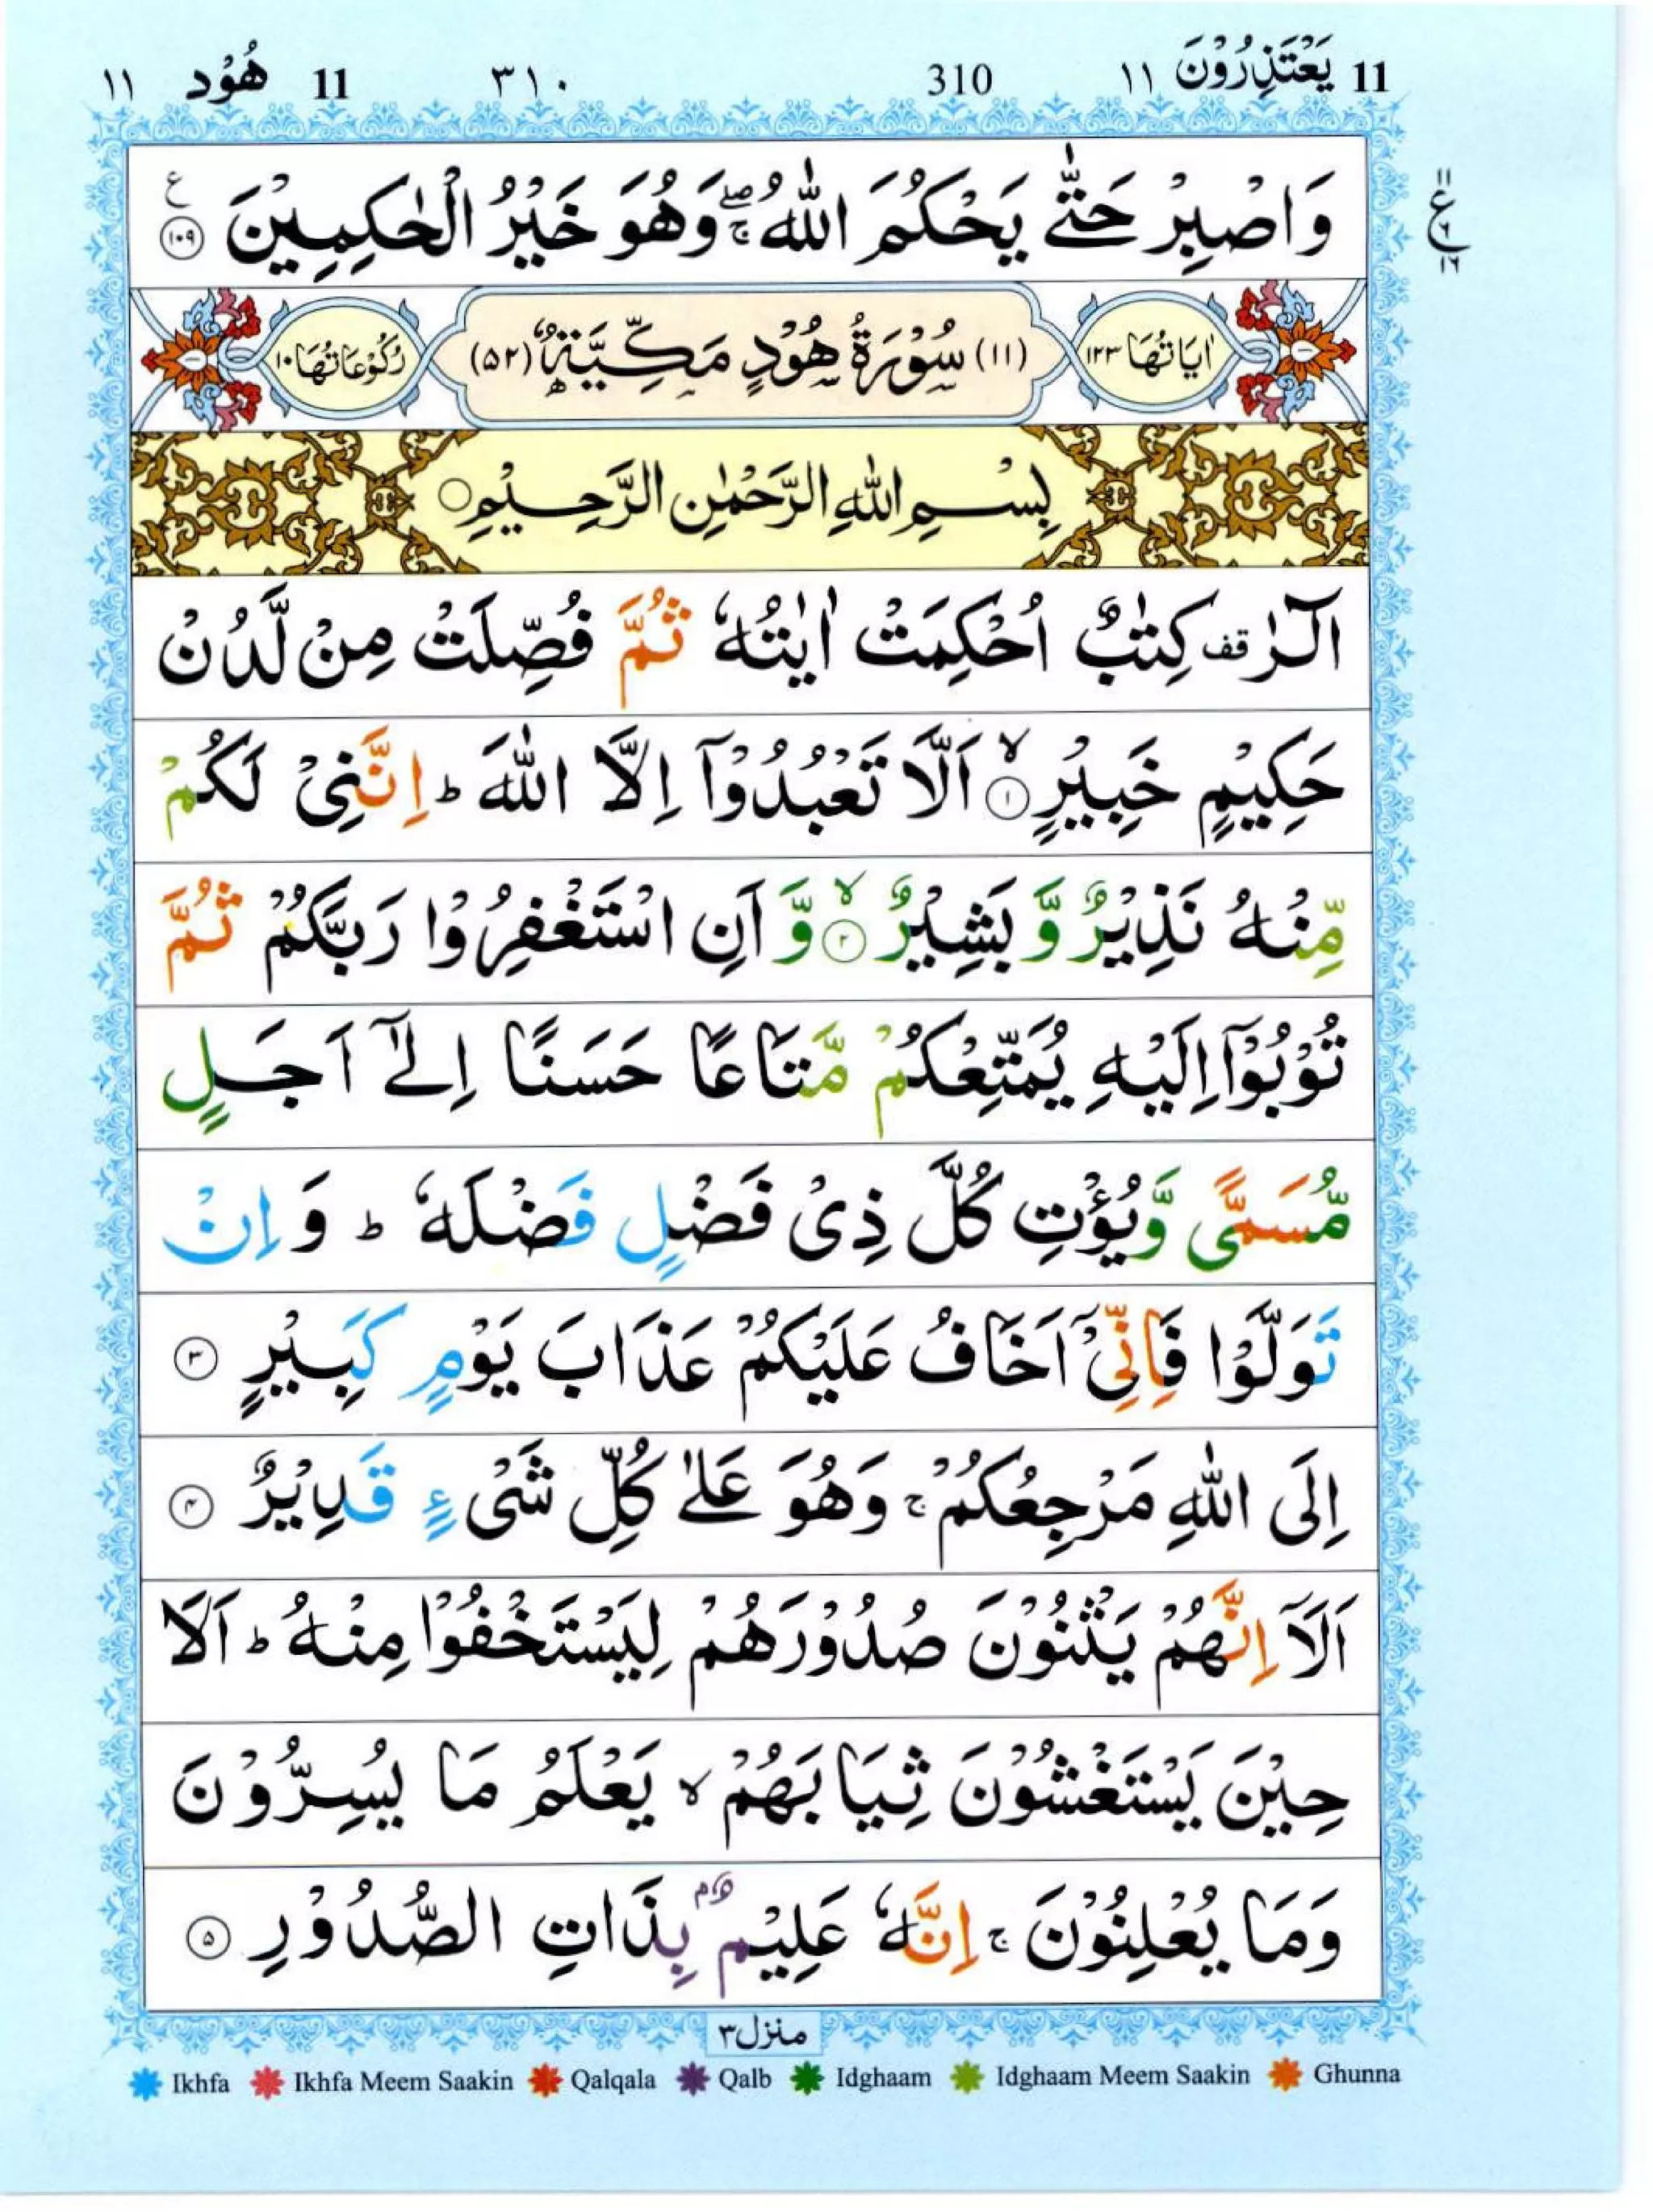 11 يَعْتَذِرُوْنَ ١١ 310 ٣١٠ 11 هُوْد ١١
وَاصْبِرْ حَتّٰى يَحْكُمَ اللّٰهُ ۚۖ وَهُوَ خَيْرُ الْحٰكِمِيْنَ ع ١٠٩
١١ ع ٦ ١٦
اٰيَاتُهَا ١٢٣ (١١) سُوْرَةُ هُوْدٍ مَكِّيَّةٌ (٥٢) رُكُوْعَاتُهَا ١٠
بِسْمِ اللّٰهِ الرَّحْمٰنِ الرَّحِيْمِ ○
الٓرٰ قف كِتٰبٌ اُحْكِمَتْ اٰيٰتُهٗ ثُمَّ فُصِّلَتْ مِنْ لَّدُنْ
حَكِيْمٍ خَبِيْرٍ ۙ ١ اَلَّا تَعْبُدُوْٓا اِلَّا اللّٰهَ ؕ اِنَّنِىْ لَكُمْ
مِّنْهُ نَذِيْرٌ وَّ بَشِيْرٌ ۙ ٢ وَّ اَنِ اسْتَغْفِرُوْا رَبَّكُمْ ثُمَّ
تُوْبُوْٓا اِلَيْهِ يُمَتِّعْكُمْ مَّتَاعًا حَسَنًا اِلٰٓى اَجَلٍ
مُّسَمًّى وَّيُؤْتِ كُلَّ ذِىْ فَضْلٍ فَضْلَهٗ ؕ وَ اِنْ
تَوَلَّوْا فَاِنِّىْٓ اَخَافُ عَلَيْكُمْ عَذَابَ يَوْمٍ كَبِيْرٍ ٣
اِلَى اللّٰهِ مَرْجِعُكُمْ ۚ وَهُوَ عَلٰى كُلِّ شَىْءٍ قَدِيْرٌ ٤
اَلَآ اِنَّهُمْ يَثْنُوْنَ صُدُوْرَهُمْ لِيَسْتَخْفُوْا مِنْهُ ؕ اَلَا
حِيْنَ يَسْتَغْشُوْنَ ثِيَابَهُمْ ۙ يَعْلَمُ مَا يُسِرُّوْنَ
وَمَا يُعْلِنُوْنَ ۚ اِنَّهٗ عَلِيْمٌۢ بِذَاتِ الصُّدُوْرِ ٥
منزل ٣
Ikhfa Ikhfa Meem Saakin Qalqala Qalb Idghaam Idghaam Meem Saakin Ghunna